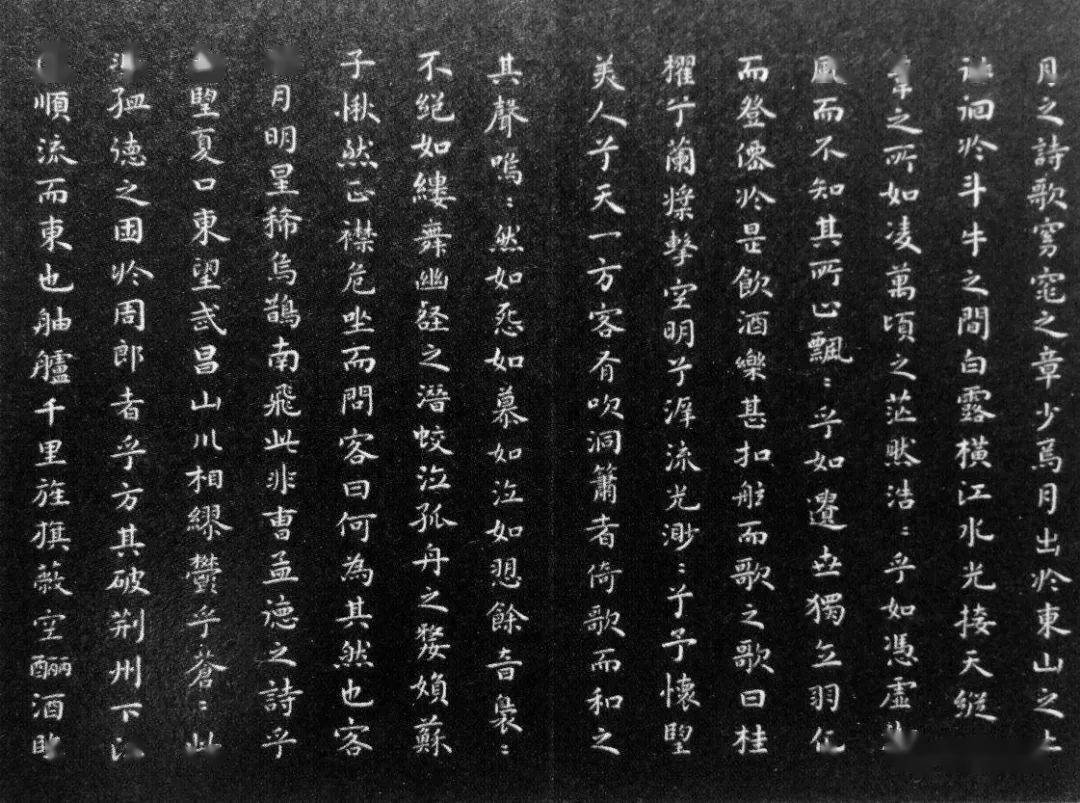 月之詩歌窈窕之章少焉月出於東山之上
徊於斗牛之間白露橫江水光接天縱
之所如凌萬頃之茫然浩：乎如憑虛
風而不知其所止飄：乎如遺世獨立羽化
而登僊於是飲酒樂甚扣舷而歌之歌曰桂
櫂兮蘭槳擊空明兮泝流光渺：兮予懷望
美人兮天一方客有吹洞簫者倚歌而和之
其聲嗚：然如怨如慕如泣如愬餘音裊：
不絕如縷舞幽壑之潛蛟泣孤舟之嫠婦蘇
子愀然正襟危坐而問客曰何為其然也客
月明星稀烏鵲南飛此非曹孟德之詩乎
望夏口東望武昌山川相繆鬱乎蒼：此
孟德之困於周郎者乎方其破荊州下江
順流而東也舳艫千里旌旗蔽空釃酒臨